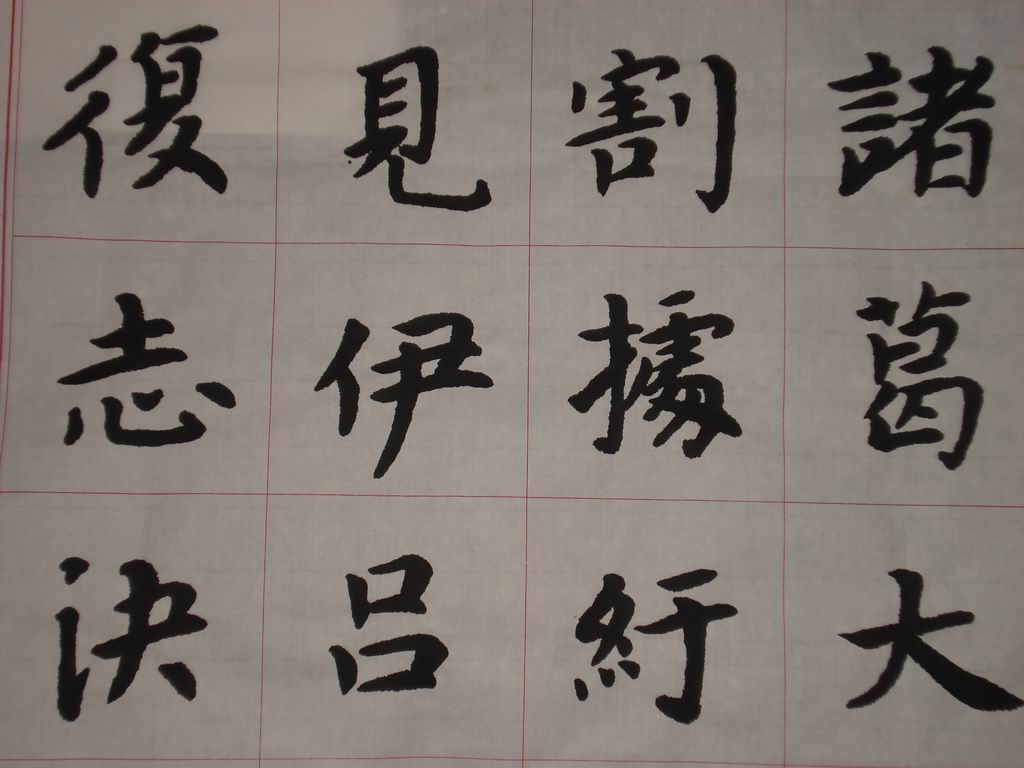 諸葛大
割據紆
見伊吕
復志決